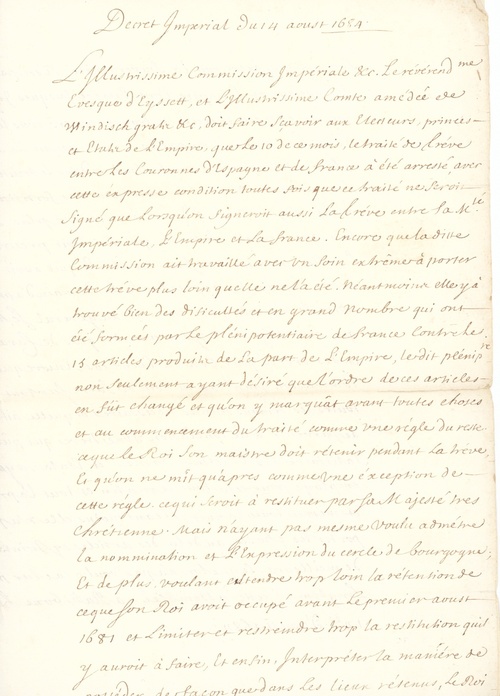 Decret Imperial du 14 aoust 1684.
L'Illustrissime Commission Impériale &c. Le révérend.me
Evesque d'Eyssett, et L'Illustrissime Comte amédée de
Windischgratz &c, doit faire sçavoir aux Electeurs, princes
et Etats de L'Empire, que Le 10 de ce mois, le traité de trêve
entre Les Couronnes d'Espagne et de france a été arresté avec
cette expresse condition toutes fois que ce traité ne seroit
signé que Lorsqu'on signeroit aussi La trêve entre Sa M.té
Impériale, L'Empire et La france. Encore que La ditte
Commission ait travaillé avec un soin extrême à porter
cette trêve plus loin qu'elle ne l'a été, Néantmoins elle y a
trouvé bien des dificultés et en grand Nombre qui ont
été formées par Le plénipotentiaire de france Contre Les
15 articles produits de La part de L'Empire, Ledit plénip.re
non seulement ayant désiré que L'ordre de ces articles
en fût changé et qu'on y marquât avant toutes choses
et au commencement du traité comme une régle du reste
ce que Le Roi Son maistre doit retenir pendant La trêve,
Et qu'on ne mît qu'aprés comme une éxception de
cette régle ce qui seroit à restituer par Sa Majesté trés
Chrétienne. Mais n'ayant pas mesme voulu admétre
La nommination et L'Expression du cercle de bourgogne;
Et de plus, voulant entendre trop loin La rétention de
ce que Son Roi avoit occupé avant Le premier aoust
1681 et Limiter et restreindre trop La restitution qu'il
y auroit à faire, Et enfin, Interpréter La maniére de
posséder de façon que dans Les lieux retenus, Le Roi